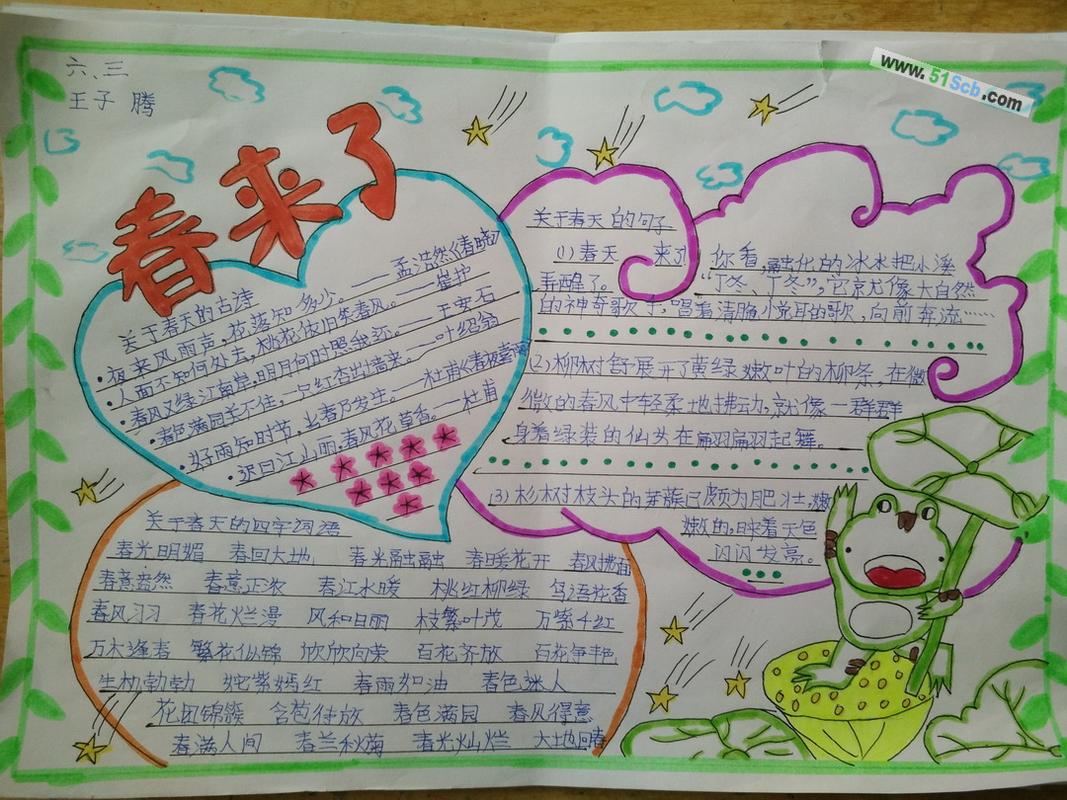 六、三
王子腾
www.51Scb.com
春来了
关于春天的古诗
·夜来风雨声，花落知多少。——孟浩然《春晓》
·人面不知何处去，桃花依旧笑春风。——崔护
·春风又绿江南岸，明月何时照我还。——王安石
·春色满园关不住，一支红杏出墙来。——叶绍翁
·好雨知时节，当春乃发生。——杜甫《春夜喜雨》
·迟日江山丽，春风花草香。——杜甫
关于春天的句子
(1)春天来了，你看，融化的冰水把小溪
弄醒了。“丁冬、丁冬”，它就像大自然
的神奇歌手，唱着清脆悦耳的歌，向前奔流……
(2)柳树舒展开了黄绿嫩叶的柳条，在微
微的春风中轻柔地拂动，就像一群群
身着绿装的仙女在翩翩起舞。
(3)杉树枝头的芽簇已颇为肥壮，嫩
嫩的，映着天色
闪闪发亮。
关于春天的四字词语
春光明媚 春回大地 春光融融 春暖花开 春风拂面
春意盎然 春意正浓 春江水暖 桃红柳绿 鸟语花香
春风习习 春花烂漫 风和日丽 枝繁叶茂 万紫千红
万木逢春 繁花似锦 欣欣向荣 百花齐放 百花争艳
生机勃勃 姹紫嫣红 春雨如油 春色迷人
花团锦簇 含苞待放 春色满园 春风得意
春满人间 春兰秋菊 春光灿烂 大地回春